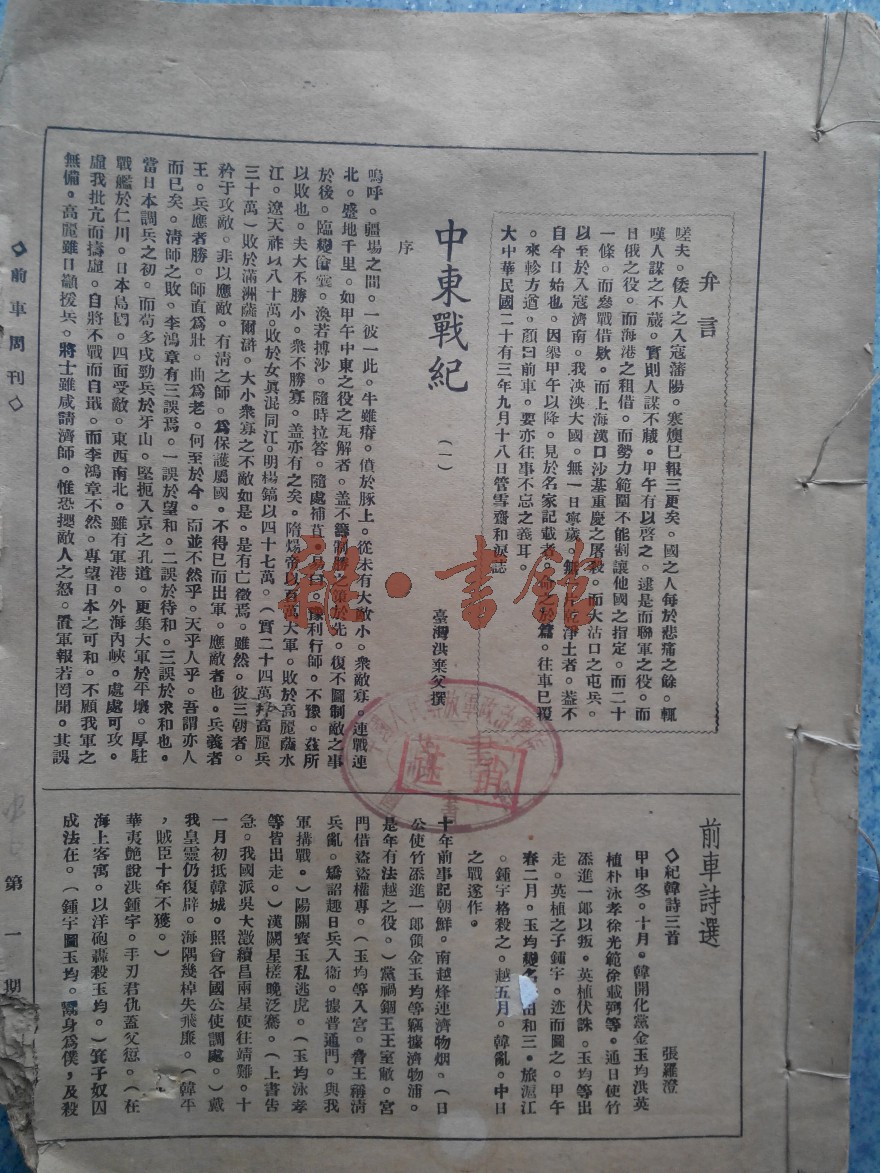 弁言
嗟夫。倭人之入寇瀋陽。寒燠已報三更矣。國之人每於悲痛之餘。輒
嘆人謀之不臧。實則人謀不臧。甲午有以啓之。逮是而聯軍之役。而
日俄之役。而海港之租借。而勢力範圍不能割讓他國之指定。而二十
一條。而參戰借欵。而上海漢口沙基重慶之屠殺。而大沽口之屯兵。
以至於入寇濟南。我泱泱大國。無一日寧歲。無淨土者。蓋不
自今日始也。因舉甲午以降。見於名家記載者。於篇。往車已覆
。來軫方遒。顏曰前車。要亦往事不忘之義耳。
大中華民國二十有三年九月十八日管雪齋和淚誌
中東戰紀（一）
臺灣洪棄父撰
序
嗚呼。疆場之間。一彼一此。牛雖瘠。僨於豚上。從未有大敵小。衆敵寡。連戰連
北。蹙地千里。如甲午中東之役之瓦解者。盖不籌制勝之策於先。復不圖制敵之事
於後。臨變倉皇。渙若搏沙。隨時拉答。隨處補苴。易曰。豫利行師。不豫。玆所
以敗也。夫大不勝小。衆不勝寡。盖亦有之矣。隋煬帝以百萬大軍。敗於高麗薩水
江。遼天祚以八十萬。敗於女眞混同江。明楊鎬以四十七萬。（實二十四萬幷高麗兵
三十萬）敗於滿洲薩爾滸。大小衆寡之不敵如是。是有亡徵焉。雖然。彼三朝者。
矜于攻敵。非以應敵。有淸之師。爲保護屬國。不得已而出軍。應敵者也。兵義者
王。兵應者勝。師直爲壯。曲爲老。何至於今。而並不然乎。天乎人乎。吾謂亦人
而已矣。淸師之敗。李鴻章有三誤焉。一誤於望和。二誤於待和。三誤於求和也。
當日本調兵之初。而苟多戍勁兵於牙山。堅扼入京之孔道。更集大軍於平壤。厚駐
戰艦於仁川。日本島國。四面受敵。東西南北。雖有軍港。外海內峽。處處可攻。
虛我批亢而擣虛。自將不戰而自戢。而李鴻章不然。專望日本之可和。不顧我軍之
無備。高麗雖日籲援兵。將士雖咸請濟師。惟恐攖敵人之怒。置軍報若罔聞。其誤
前車詩選
◇紀韓詩三首
張羅澄
甲申冬。十月。韓開化黨金玉均洪英
植朴泳孝徐光範徐載弼等。通日使竹
添進一郎以叛。英植伏誅。玉均等出
走。英植之子鍾宇。迹而圖之。甲午
春二月。玉均變名田和三。旅滬江
。鍾宇格殺之。越五月。韓亂。中日
之戰遂作。
十年前事記朝鮮。南越烽連濟物烟。（日
公使竹添進一郎領金玉均等竊據濟物浦。
是年有法越之役。）黨禍錮王王室敝。宮
門借盜盜權專。（玉均等入宮。脅王稱淸
兵亂。矯詔趣日兵入衞。據普通門。與我
軍搆戰。）陽關寳玉私逃虎。（玉均泳孝
等皆出走。）漢闕星槎晚泛鶱。（上書告
急。我國派吳大澂續昌兩星使往靖難。十
一月初抵韓城。照會各國公使調處。）戴
我皇靈仍復辟。海隅幾棹失飛廉。（韓平
，賊臣十年不獲。）
華夷艶說洪鍾宇。手刃君仇蓋父愆。（在
海上客寓。以洋砲轟殺玉均。）箕子奴囚
成法在。（鍾宇圖玉均。鬻身爲僕，及殺
◇前車周刊◇
第一期
龍・書館